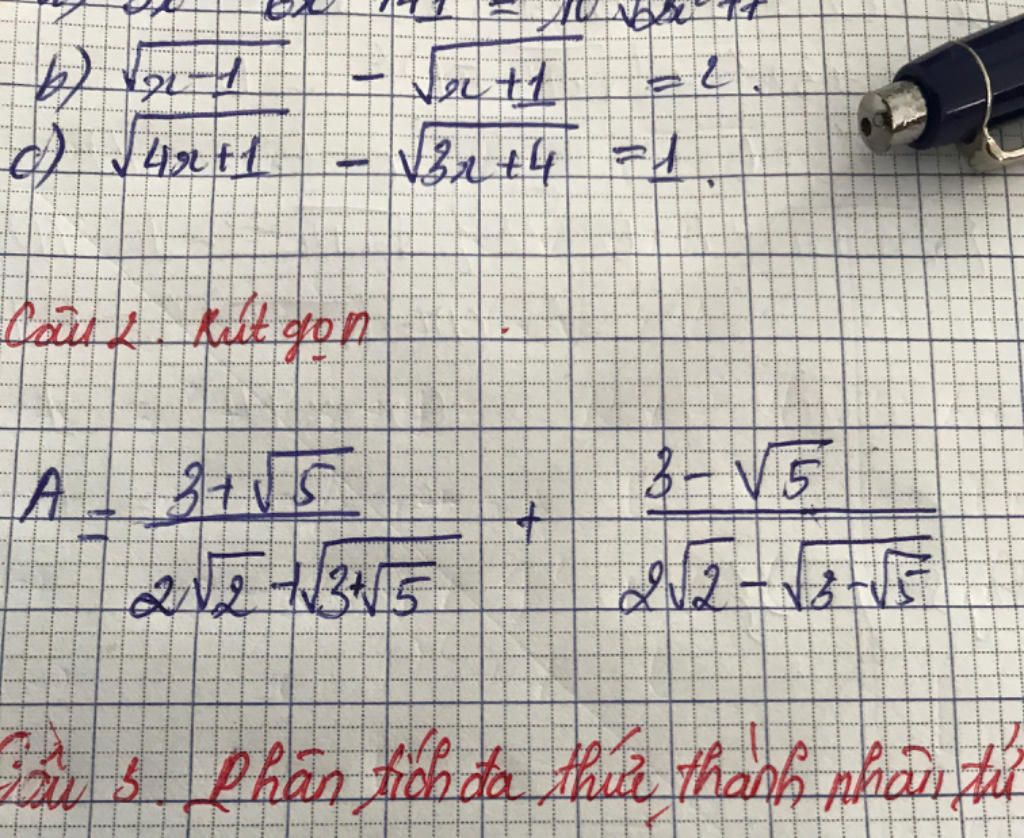 b) √(x-1) - √(x+1) = 2.
c) √(4x+1) - √(3x+4) = 1.
Câu 2. Rút gọn
A = (3+√5)/(2√2+√(3+√5)) + (3-√5)/(2√2-√(3-√5))
Câu 3. Phân tích đa thức thành nhân tử